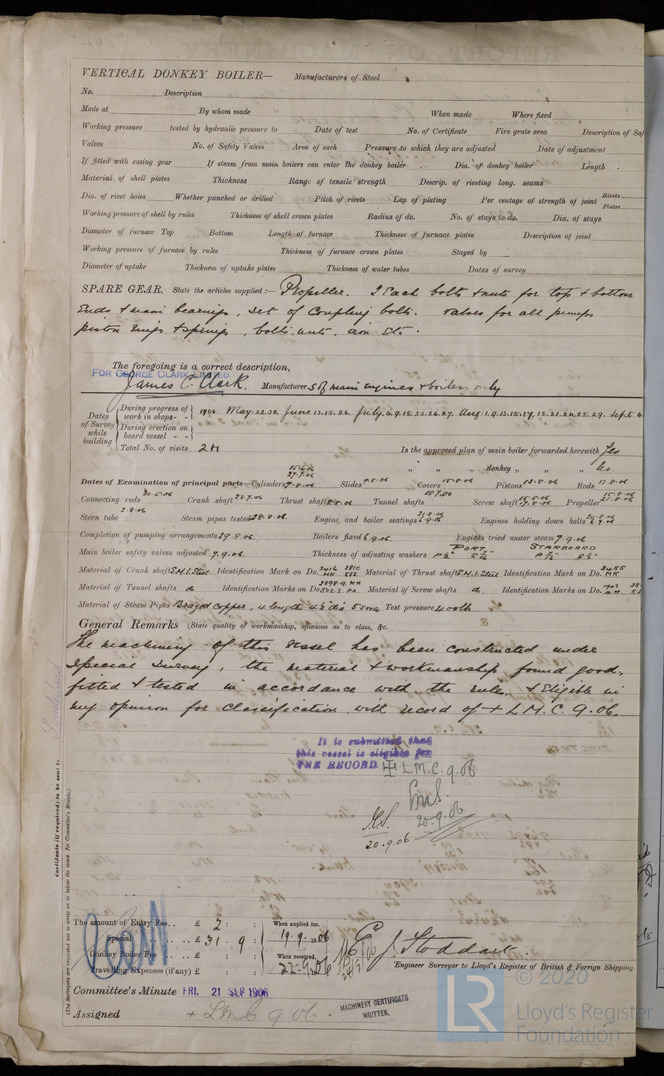 VERTICAL DONKEY BOILER— Manufacturers of Steel
No. Description
Made at By whom made When made Where fixed
Working pressure tested by hydraulic pressure to Date of test No. of Certificate Fire grate area Description of Saf
Valves No. of Safety Valves Area of each Pressure to which they are adjusted Date of adjustment
If fitted with easing gear If steam from main boilers can enter the donkey boiler Dia. of donkey boiler Length
Material of shell plates Thickness Range of tensile strength Descrip. of riveting long. seams
Dia. of rivet holes Whether punched or drilled Pitch of rivets Lap of plating Per centage of strength of joint Rivets Plates
Working pressure of shell by rules Thickness of shell crown plates Radius of do. No. of stays to do. Dia. of stays
Diameter of furnace Top Bottom Length of furnace Thickness of furnace plates Description of joint
Working pressure of furnace by rules Thickness of furnace crown plates Stayed by
Diameter of uptake Thickness of uptake plates Thickness of water tubes Dates of survey
SPARE GEAR. State the articles supplied:— Propeller. 2 Each bolts & nuts for top & bottom
Ends & main bearings, set of Coupling bolts. valves for all pumps
piston rings & springs, bolts, nuts, iron Etc.
The foregoing is a correct description,
FOR GEORGE CLARK LIMITED.
James C. Clark. Manufacturers of main engines & boilers only
Dates of Survey while building
During progress of work in shops - - 1906. May 22. 30. June 13. 15. 26. July 6. 9. 18. 20. 26. 27. Aug 1. 9. 13. 15. 17. 18. 21. 24. 28. 29. Sept 6.
During erection on board vessel - -
Total No. of visits 24 Is the approved plan of main boiler forwarded herewith Yes
" " " donkey " " No.
Dates of Examination of principal parts—Cylinders Slides 9.8.06 Covers 15.8.06 Pistons 13.8.06 Rods 13.8.06
Connecting rods 30.5.06 Crank shaft 23.7.06 Thrust shaft Tunnel shafts Screw shaft Propeller
Stern tube 2.8.06 Steam pipes tested 28.8.06 Engine and boiler seatings Engines holding down bolts
Completion of pumping arrangements 29.8.06 Boilers fixed 6.9.06 Engines tried under steam 7.9.06
Main boiler safety valves adjusted 7.9.06 Thickness of adjusting washers PORT STARBOARD
Material of Crank shaft S.M.I. Steel Identification Mark on Do. Material of Thrust shaft S.M.I. Steel Identification Mark on Do.
Material of Tunnel shafts do Identification Marks on Do. Material of Screw shafts do Identification Marks on Do.
Material of Steam Pipes Brazed copper, Test pressure 400 lb
General Remarks (State quality of workmanship, opinions as to class, &c.
The machinery of this vessel has been constructed under
special survey, the material & workmanship found good,
fitted & tested in accordance with the rules, & Eligible in
my opinion for classification with record of + L.M.C. 9.06.
It is submitted that
this vessel is eligible for
THE RECORD + L.M.C. 9.06
20.9.06
20.9.06
Certificate (if required) to be sent to
(The Surveyors are requested not to write on or below the space for Committee's Minute.)
The amount of Entry Fee.. £ 2 : When applied for,
Special .. £ 31 . 9 : 19.9.1906
Donkey Boiler Fee .. £ : When received,
Travelling Expenses (if any) £ : 22.9.06
C. J. Stoddart.
Engineer Surveyor to Lloyd's Register of British & Foreign Shipping.
Committee's Minute FRI. 21 SEP 1906
Assigned + LMC 9.06.
MACHINERY CERTIFICATE
WRITTEN.
© 2020
LR
Lloyd's Register
Foundation